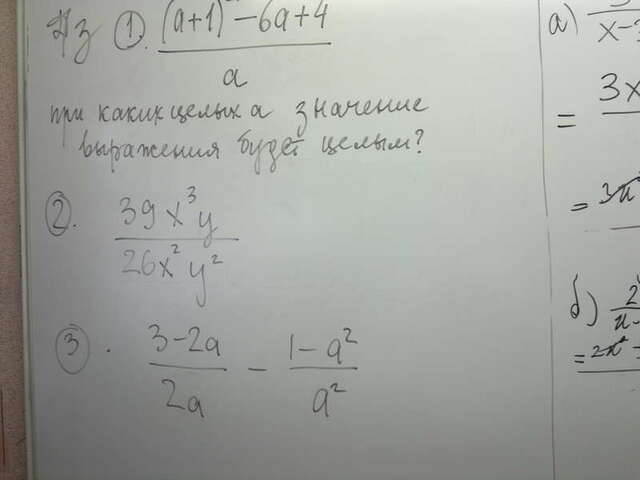 Дз ①. (a+1) - 6a+4 / a
при каких целых а значение
выражения будет целым?
②. 39x³y / 26x²y²
③. 3-2a / 2a - 1-a² / a²
а)
x-
= 3x
=
б) 2
= 2x²